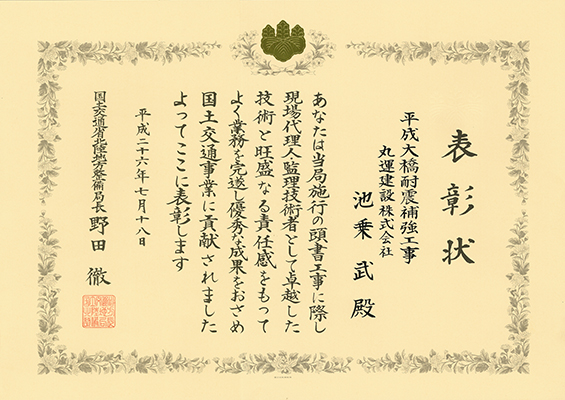 表彰状
平成大橋耐震補強工事
丸運建設株式会社
池乗武殿
あなたは当局施行の頭書工事に際し
現場代理人・監理技術者として卓越した
技術と旺盛なる責任感をもって
よく業務を完遂し優秀な成果をおさめ
国土交通事業に貢献されました
よってここに表彰します
平成二十六年七月十八日
国土交通省北陸地方整備局長 野田徹